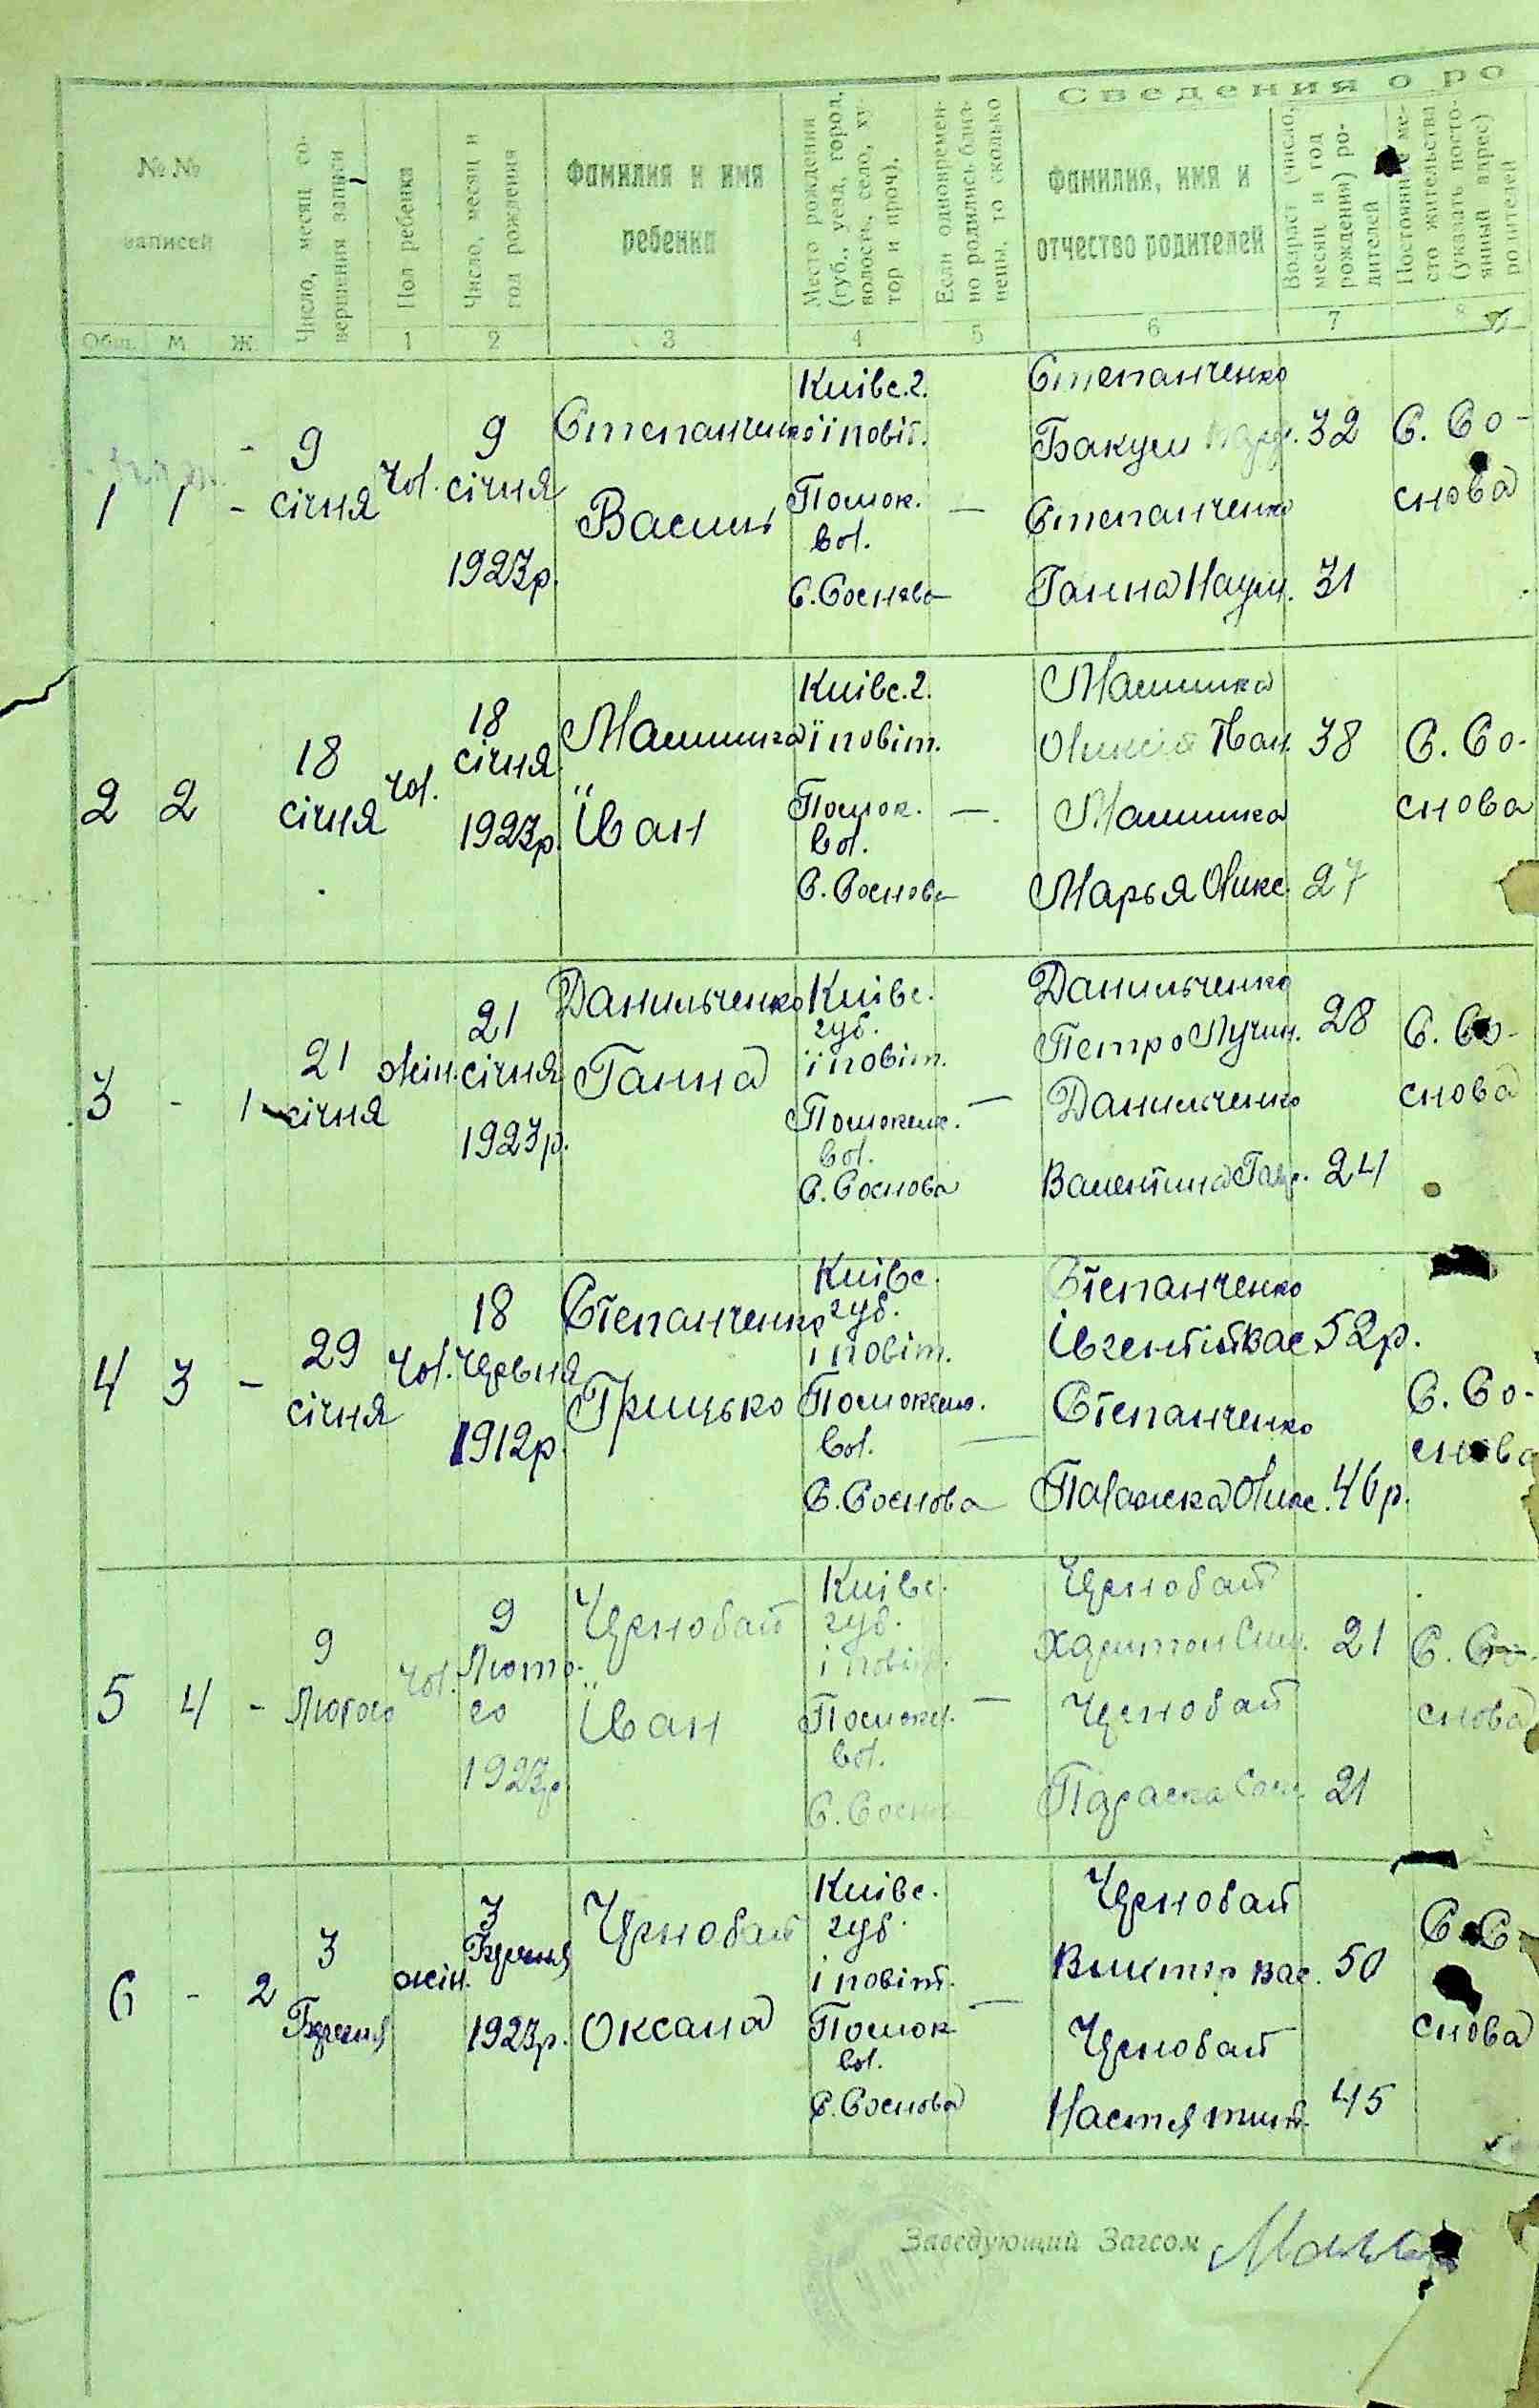 Сведения о ро
№ №
записей
Общ. М Ж
Число, месяц со-
вершения записи
Пол ребенка
1
Число, месяц и
год рождения
2
Фамилия и имя
ребенка
3
Место рождения
(губ., уезд, город,
волость, село, ху-
тор и проч).
4
Если одновремен-
но родились близ-
нецы, то сколько
5
Фамилия, имя и
отчество родителей
6
Возраст (число,
месяц и год
рождения) ро-
дителей
7
Постоянное ме-
сто жительства
(указать посто-
янный адрес)
родителей
8
1 1 -
9
січня
Чол.
9
січня
1923р.
Степанченко
Василь
Київс. г.
і повіт.
вол.
С. Соснова
—
Степанченко
32
Степанченко
Ганна Наум. 31
С. Со-
снова
2 2
18
січня
Чол.
18
січня
1923р.
Їван
Київс. г.
ї повіт.
вол.
С. Соснова
—
38
Марья Олекс. 27
С. Со-
снова
3 - 1
21
січня
жін.
21
січня
1923р.
Данильченко
Ганна
Київс.
губ.
ї повіт.
вол.
С. Соснова
—
Данильченко
Петро 28
Данильченко
Валентина 24
С. Со-
снова
4 3 -
29
січня
Чол.
18
Червня
1912р.
Степанченко
Грицько
Київс.
губ.
і повіт.
вол.
С. Соснова
—
Степанченко
Вас. 52р.
Степанченко
Палажка Олекс. 46р.
С. Со-
снова
5 4 -
9
Лютого
Чол.
9
Люто-
го
1923р.
Чернобай
Їван
Київс.
губ.
і повіт.
вол.
С. Соснова
—
Чернобай
Харитон 21
Чернобай
Параска 21
С. Со-
снова
6 - 2
3
Березня
жін.
3
Березня
1923р.
Чернобай
Оксана
Київс.
губ.
і повіт.
вол.
С. Соснова
—
Чернобай
Виктор Вас. 50
Чернобай
Настя 45
С. Со-
снова
Заведующий Загсом